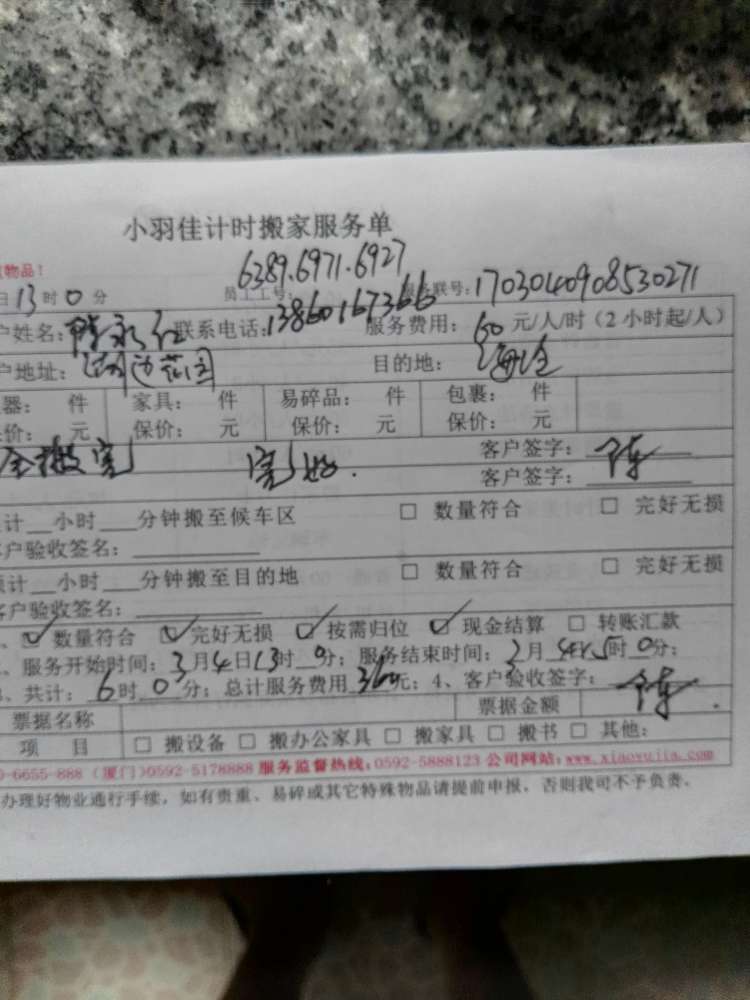 小羽佳计时搬家服务单
物品！
6389.6971.6927
日13时0分 员工工号： 服务联号：1703040908530271
户姓名： 联系电话：13860167366 服务费用：60元/人/时（2小时起/人）
户地址： 目的地：
器： 件 家具： 件 易碎品： 件 包裹： 件
保价： 元 保价： 元 保价： 元 保价： 元
客户签字：陈
全搬完 完好. 客户签字：
计__小时___分钟搬至候车区 □ 数量符合 □ 完好无损
客户验收签名：
预计__小时___分钟搬至目的地 □ 数量符合 □ 完好无损
客户验收签名：
、☑ 数量符合 ☑ 完好无损 ☑ 按需归位 ☑ 现金结算 □ 转账汇款
、服务开始时间：3月4日13时0分；服务结束时间：3月4日15时0分；
、共计：6时0分；总计服务费用360元；4、客户验收签字：陈.
票据名称 票据金额
项 目 □ 搬设备 □ 搬办公家具 □ 搬家具 □ 搬书 □ 其他：
-6655-888（厦门）0592-5178888 服务监督热线：0592-5888123 公司网站：www.xiaoyujia.com
办理好物业通行手续，如有贵重、易碎或其它特殊物品请提前申报，否则我司不予负责。